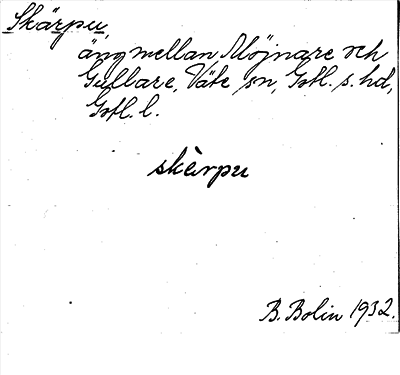 Skärpu,
äng mellan Mojnare och
Gullare, Väte sn, Gotl. s. hd,
Gotl. l.
skèrpu
B. Bolin 1932.